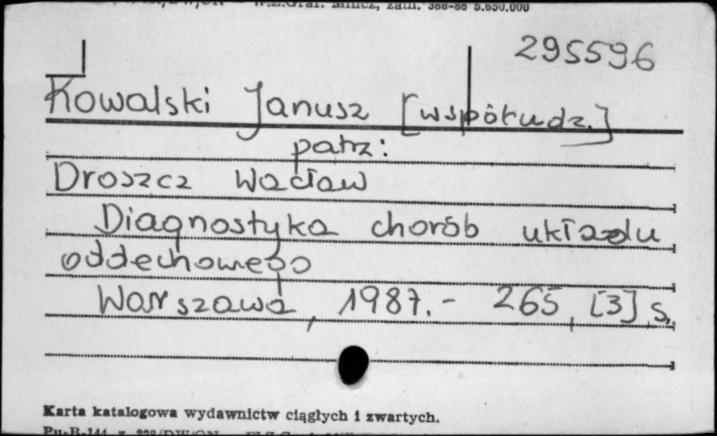 Minicz, zam. 388-86 5.650.000
295596
Kowalski Janusz [współudz.]
patrz:
Droszcz Wacław
Diagnostyka chorób układu
oddechowego
Warszawa, 1987.- 265, [3] s.
Karta katalogowa wydawnictw ciągłych i zwartych.
Pu-B-144